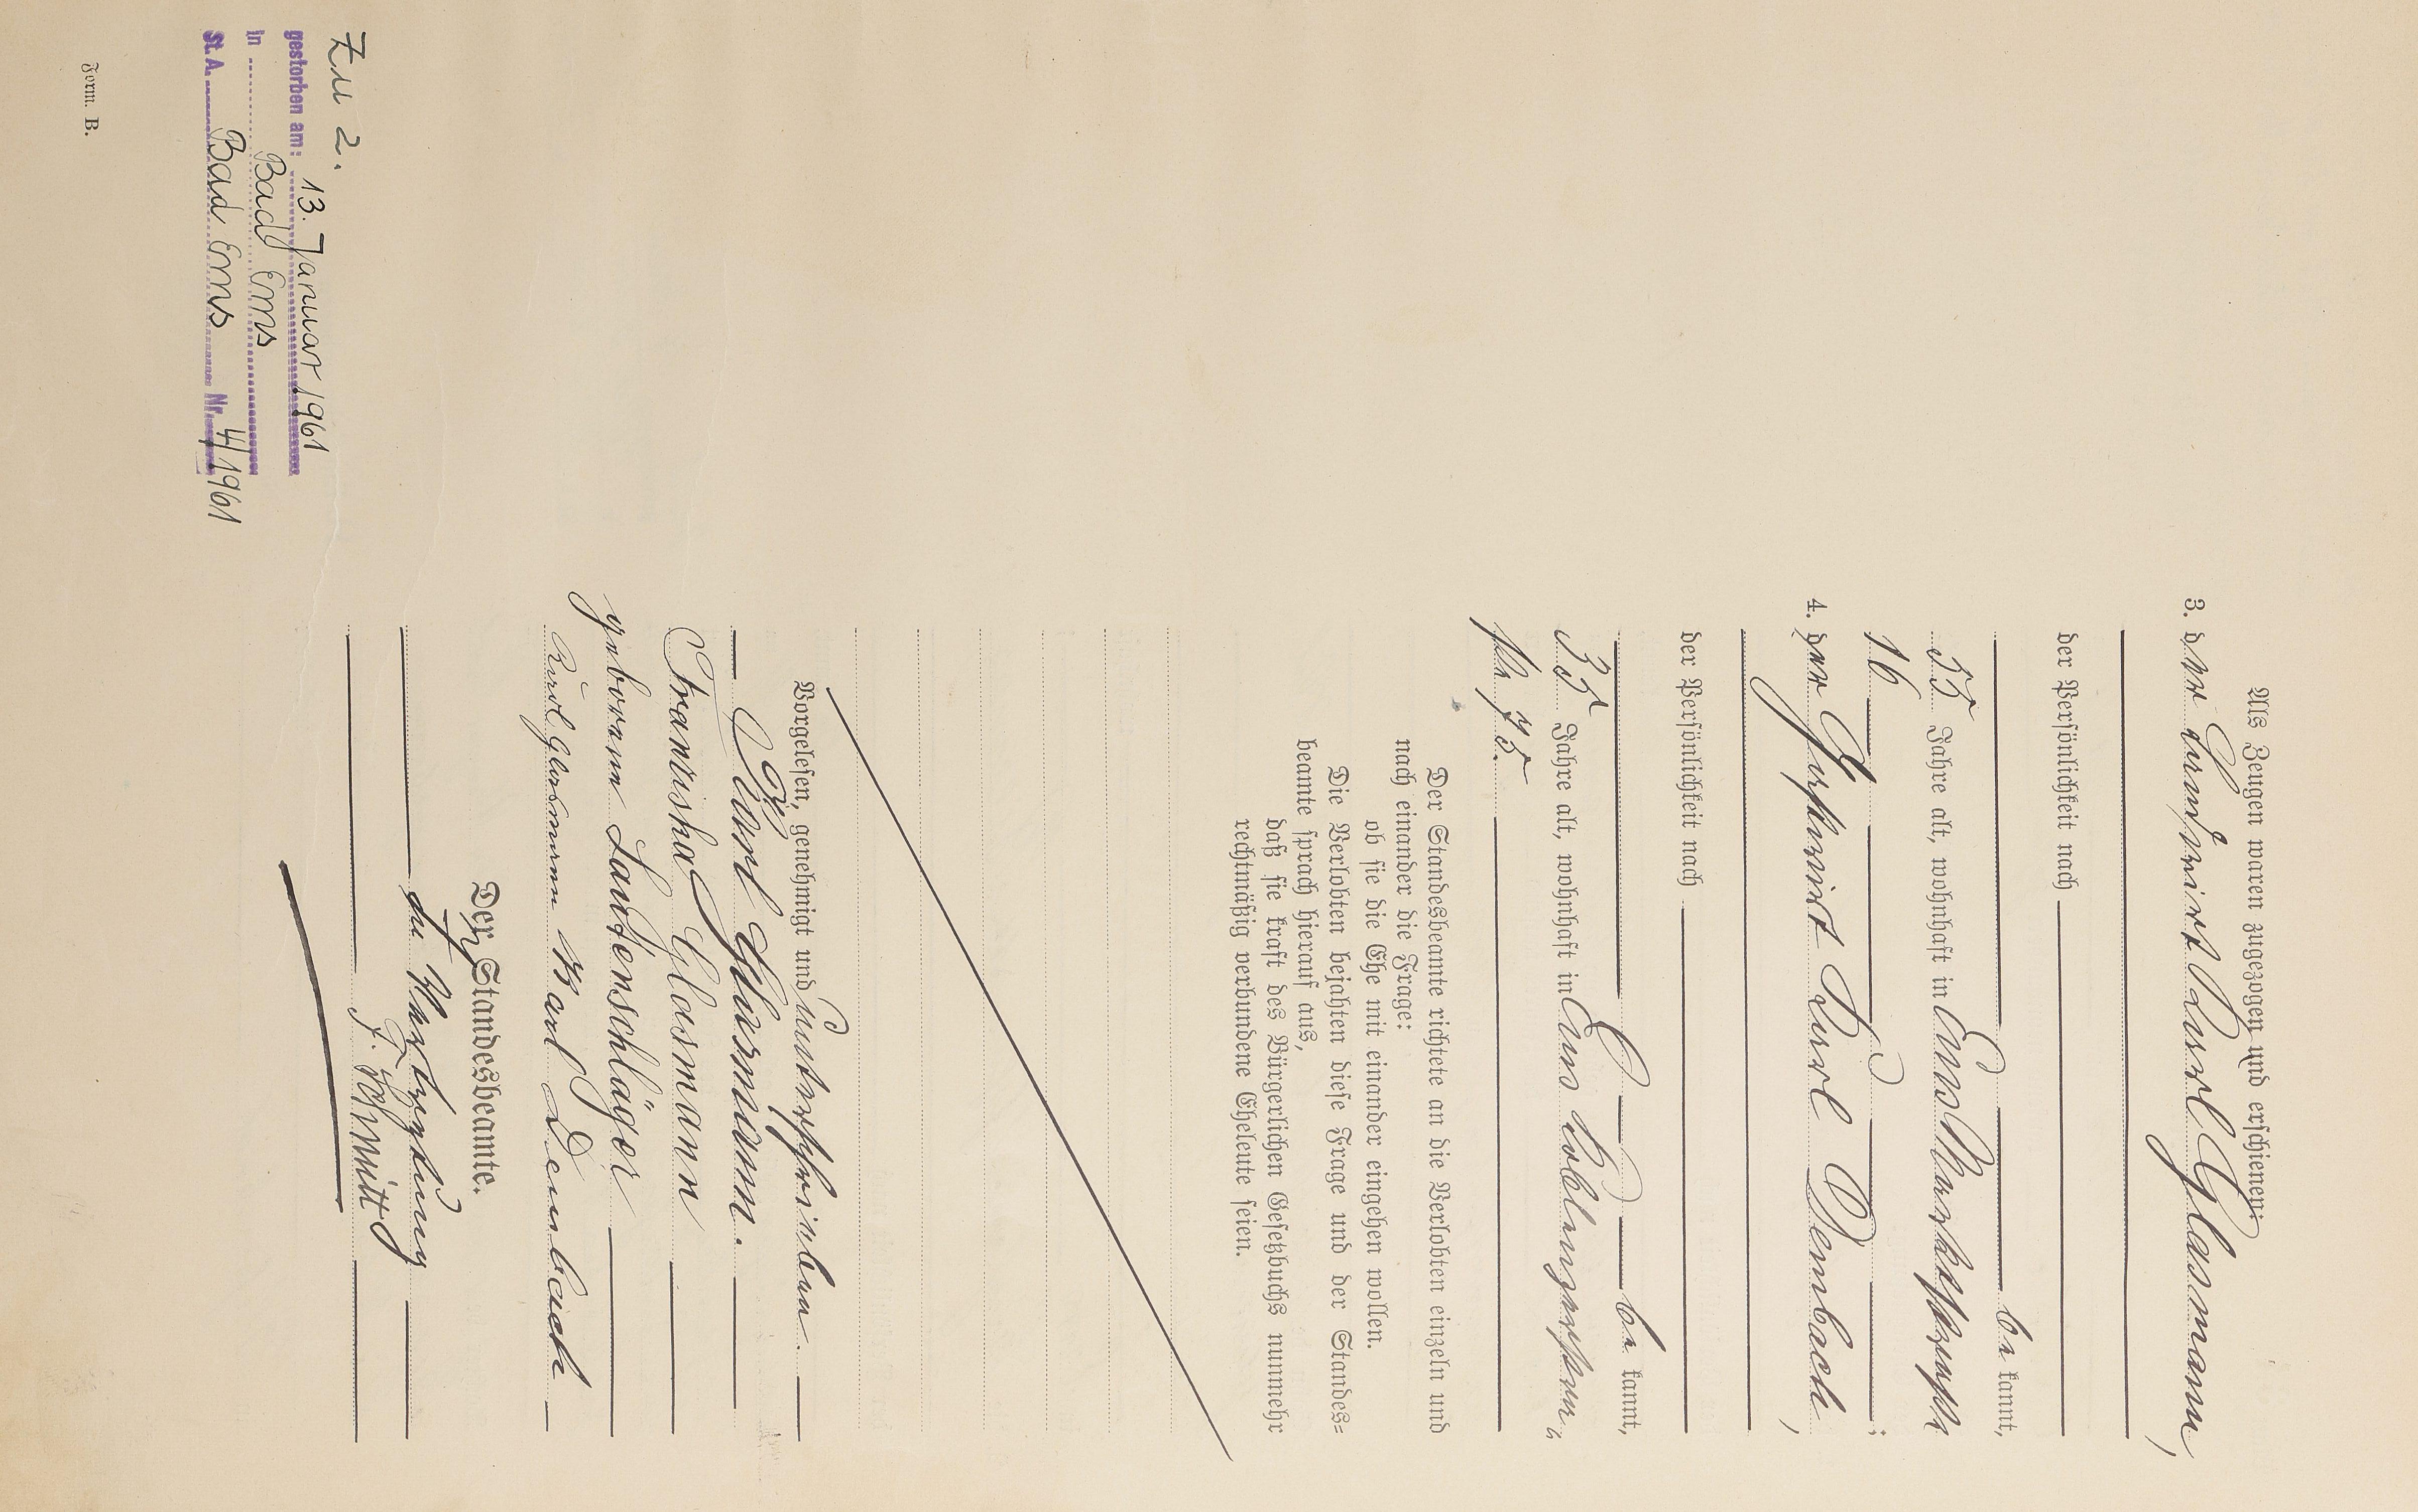 Als Zeugen waren zugezogen und erschienen:
3. der Landwirt Karl Glasmann,
der Persönlichkeit nach
be kannt,
55 Jahre alt, wohnhaft in Ems
16
4. der Gastwirt Karl Dembach,
der Persönlichkeit nach
be kannt,
35 Jahre alt, wohnhaft in Ems
Der Standesbeamte richtete an die Verlobten einzeln und
nach einander die Frage:
ob sie die Ehe mit einander eingehen wollen.
Die Verlobten bejahten diese Frage und der Standes-
beamte sprach hierauf aus,
daß sie kraft des Bürgerlichen Gesetzbuchs nunmehr
rechtmäßig verbundene Eheleute seien.
Vorgelesen, genehmigt und unterschrieben.
Karl Glasmann.
Franziska Glasmann
geborene Lautenschläger
Karl Glasmann Karl Dembach
Der Standesbeamte.
In Vertretung
F. Schmitt
Zu 2.
gestorben am: 13. Januar 1961
in Bad Ems
St. A. Bad Ems Nr. 4/1961
Form. B.